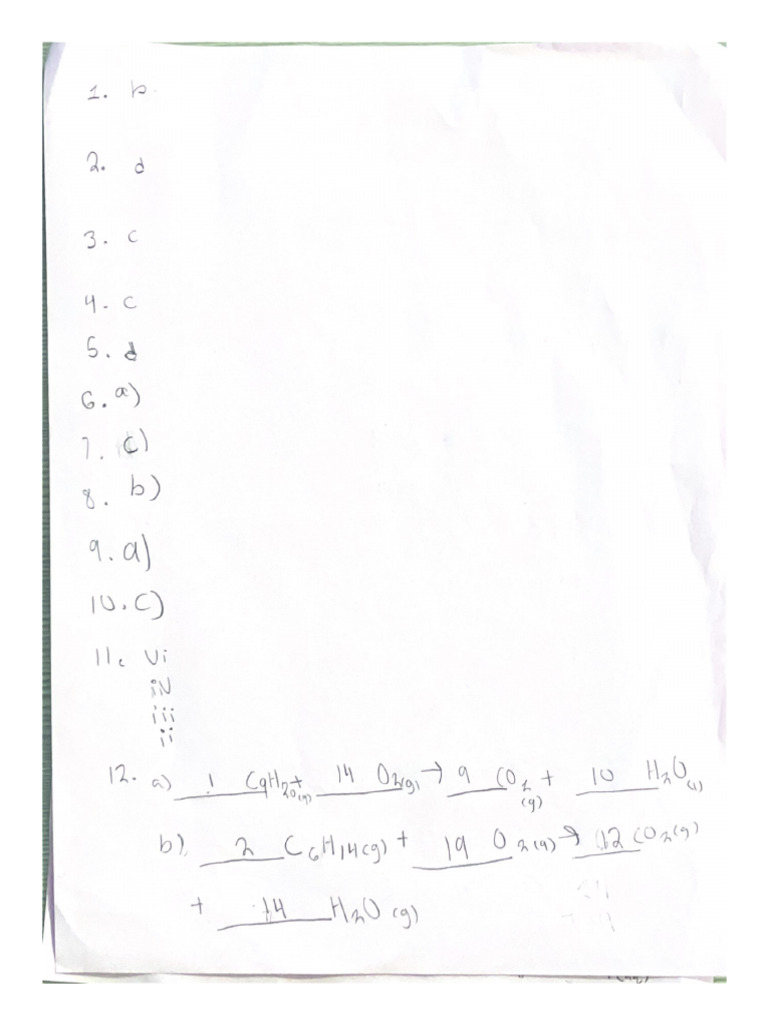 1. b.
2. d
3. c
4. c
5. d
6. a)
7. c)
8. b)
9. a)
10. c)
11. vi
iv
iii
ii
12. a) 1 C9H20(g) + 14 O2(g) → 9 CO2(g) + 10 H2O(l)
b) 2 C6H14(g) + 19 O2(g) → 12 CO2(g)
+ 14 H2O(g)